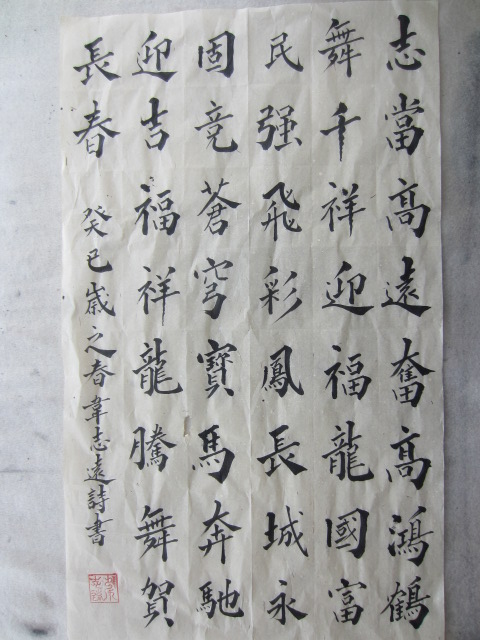 志當高遠奮高鴻鶴
舞千祥迎福龍國富
民强飛彩鳳長城永
固竞蒼穹寶馬奔馳
迎吉福祥龍騰舞賀
長春
癸巳歲之春韋志遠詩書